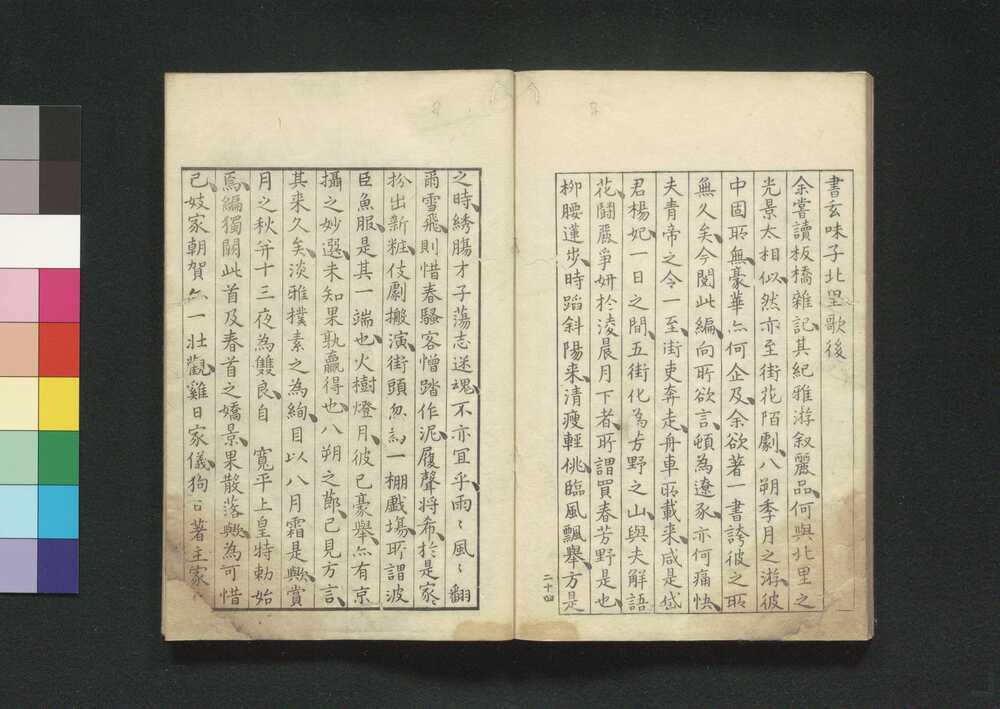 書玄味子北里歌後
余嘗讀板橋雜記其紀雅游叙麗品何與北里之
光景太相似然亦至街花陌劇八朔季月之游彼
中固所無豪華亦何企及余欲著一書誇彼之所
無久矣今閲此編向所欲言頓為遼豕亦何痛快
夫青帝之令一至街吏奔走舟車所載来咸是
君楊妃一日之間五街化為芳野之山與夫解語
花鬪嚴爭妍於淩晨月下者所謂買春芳野是也
柳腰蓮歩時蹈斜陽来清瘦輕佻臨風飄舉方是
二十四
之時綉膓才子蕩志迷魂不亦宜乎雨〻風〻翻
爾雪飛則惜春騷客憎踏作泥履聲將希於是家〻
扮出新粧伎劇搬演街頭忽為一棚戲場所謂波
臣魚服是其一端也火樹燈月彼已豪舉亦有京
攝之妙選未知果孰贏得也八朔之節已見方言
其来久矣淡雅撲素之為絢目以八月霜是歟賞
月之秋并十三夜為雙良自 寬平上皇特勅始
焉編獨闕此首及春首之嬌景果散落歟為可惜
已妓家朝賀亦一壮觀雞日家儀狗日著主家